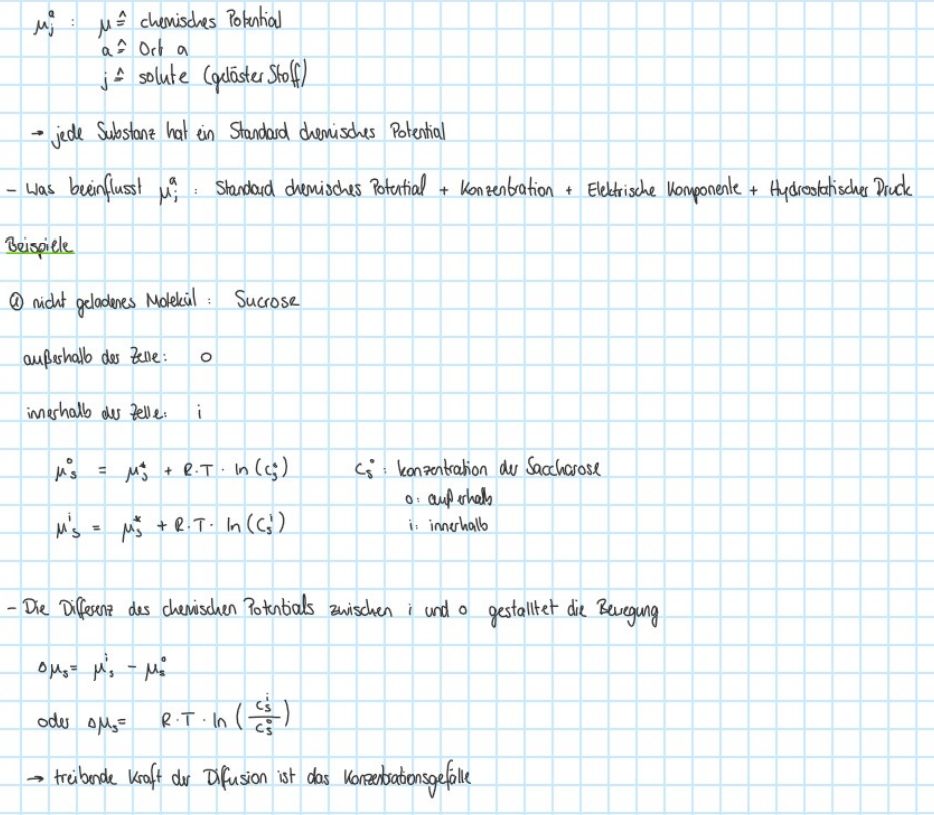 μⱼᵃ : μ ≙ chemisches Potential
a ≙ Ort a
j ≙ solute (gelöster Stoff)
→ jede Substanz hat ein Standard chemisches Potential
- Was beeinflusst μⱼᵃ : Standard chemisches Potential + Konzentration + Elektrische Komponente + Hydrostatischer Druck
Beispiele
① nicht geladenes Molekül : Sucrose
außerhalb der Zelle: o
innerhalb der Zelle: i
μₛᵒ = μₛ* + R·T · ln (cₛᵒ) cₛᵒ : Konzentration der Saccharose
o: außerhalb
μₛⁱ = μₛ* + R·T· ln (cₛⁱ) i: innerhalb
- Die Differenz des chemischen Potentials zwischen i und o gestalltet die Bewegung
Δμₛ = μₛⁱ - μₛᵒ
oder Δμₛ = R·T · ln (cₛⁱ/cₛᵒ)
→ treibende Kraft der Difusion ist das Konzentrationsgefälle